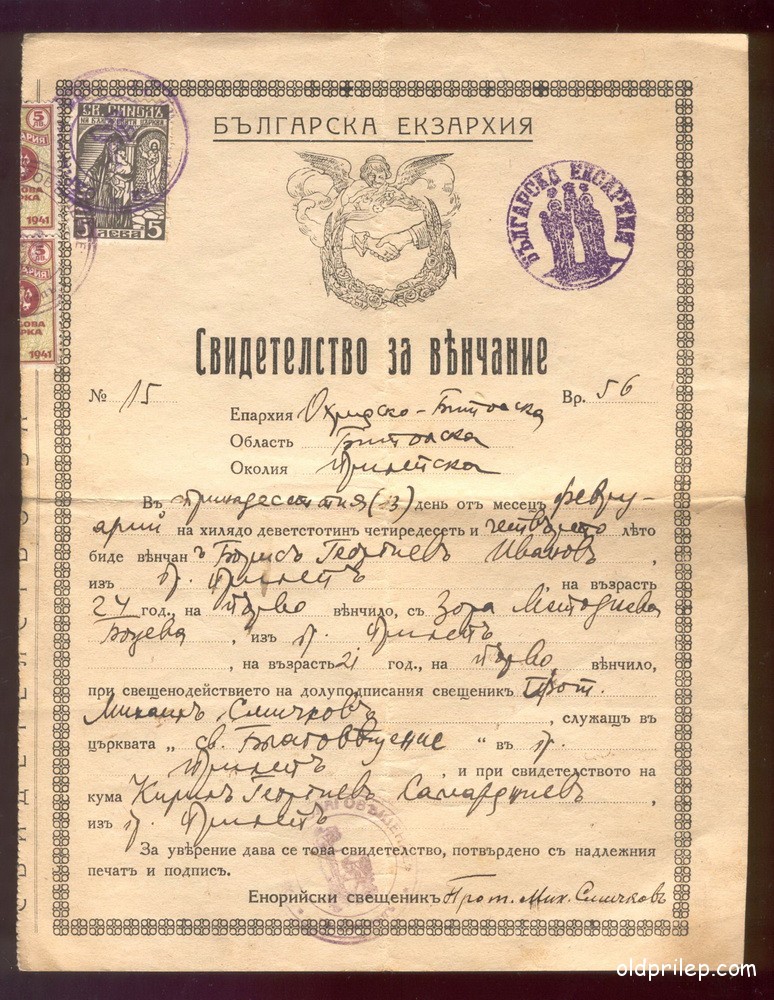 БЪЛГАРСКА ЕКЗАРХИЯ
СВ. СИНОДЪ
НА БЪЛГАРСКАТА ЦЪРКВА
5 ЛЕВА 5
БЪЛГАРСКА ЕКСАРХИЯ
5 ЛВ.
1941
5 ЛВ.
1941
Свидетелство за вѣнчание
№ 15
Вр. 56
Епархия Охридско-Битолска
Область Битолска
Околия Прилепска
Въ тринадесеттия (13) день отъ месецъ февру-
арий на хилядо деветстотинъ четиредесеть и четвърто лѣто
биде вѣнчан ъ Борисъ Георгиевъ Ивановъ ,
изъ гр. Прилепъ , на възрасть
24 год., на първо вѣнчило, съ Зора Методиева
Боцева , изъ гр. Прилепъ
, на възрасть 21 год., на първо вѣнчило,
при свещенодействието на долуподписания свещеникъ Прот.
Михаилъ Смичковъ , служащъ въ
църквата „ св. Благовѣщение “ въ гр.
Прилепъ , и при свидетелството на
кума Кирилъ Георгиевъ Самарджиевъ ,
изъ гр. Прилепъ
За увѣрение дава се това свидетелство, потвърдено съ надлежния
печатъ и подписъ.
Енорийски свещеникъ Прот. Мих. Смичковъ
oldprilep.com